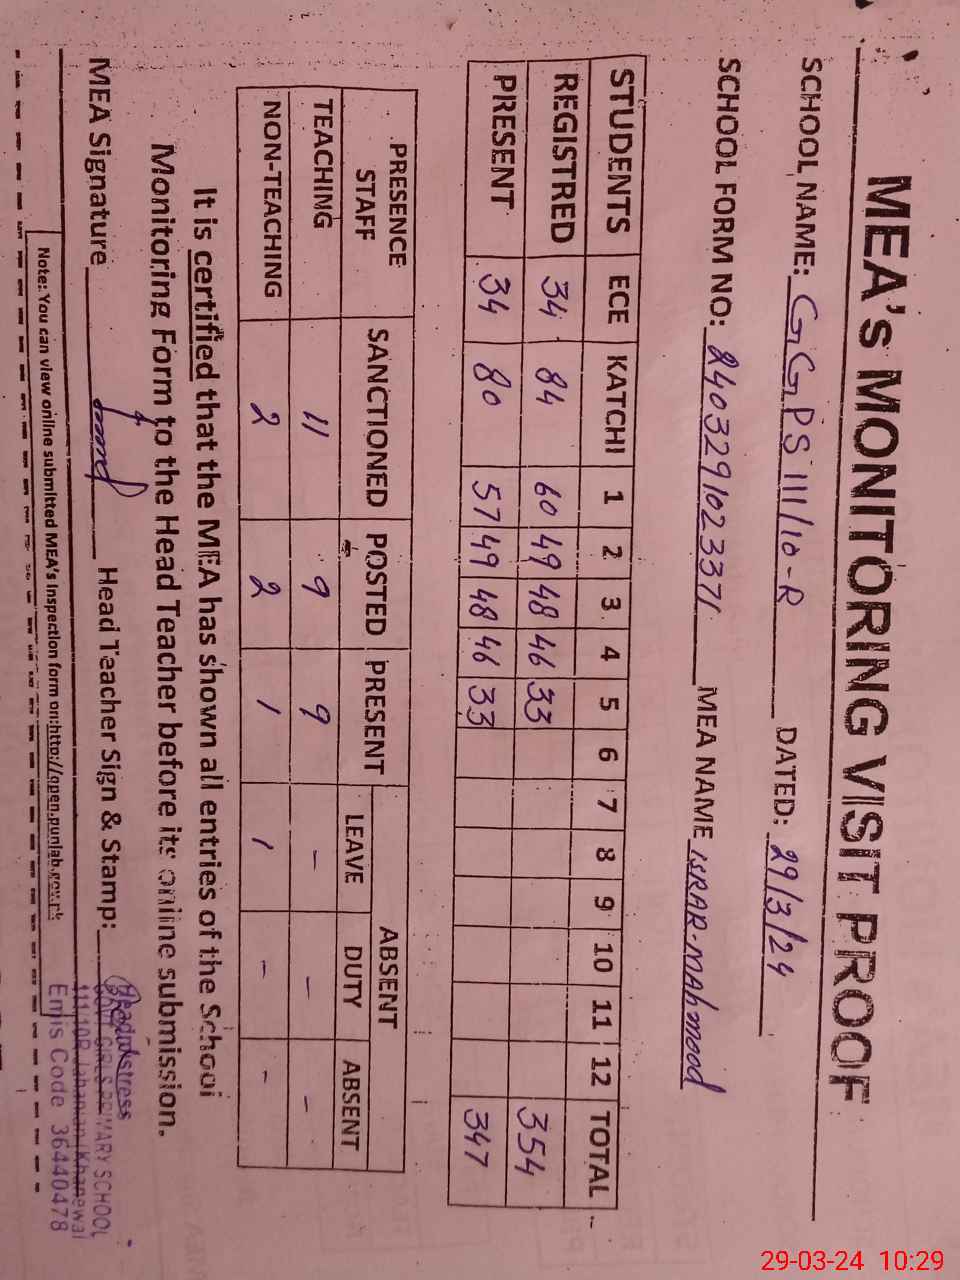 MEA's MONITORING VISIT PROOF
SCHOOL NAME: GGPS 111/10-R DATED: 29/3/24
SCHOOL FORM NO: 2403291023371 MEA NAME ISRAR-MAhmood
STUDENTS ECE KATCHI 1 2 3 4 5 6 7 8 9 10 11 12 TOTAL
REGISTRED 34 84 60 49 48 46 33 354
PRESENT 34 80 57 49 48 46 33 347
PRESENCE STAFF SANCTIONED POSTED PRESENT ABSENT
LEAVE DUTY ABSENT
TEACHING 11 9 9 - - -
NON-TEACHING 2 2 1 1 - -
It is certified that the MEA has shown all entries of the School
Monitoring Form to the Head Teacher before its online submission.
MEA Signature Head Teacher Sign & Stamp:
Headmistress
GOVT GIRLS PRIMARY SCHOOL
111/10R Jahanian (Khanewal
Emis Code 36440478
Note: You can view online submitted MEA's Inspection form on:http://open.punjab.gov.pk
29-03-24 10:29